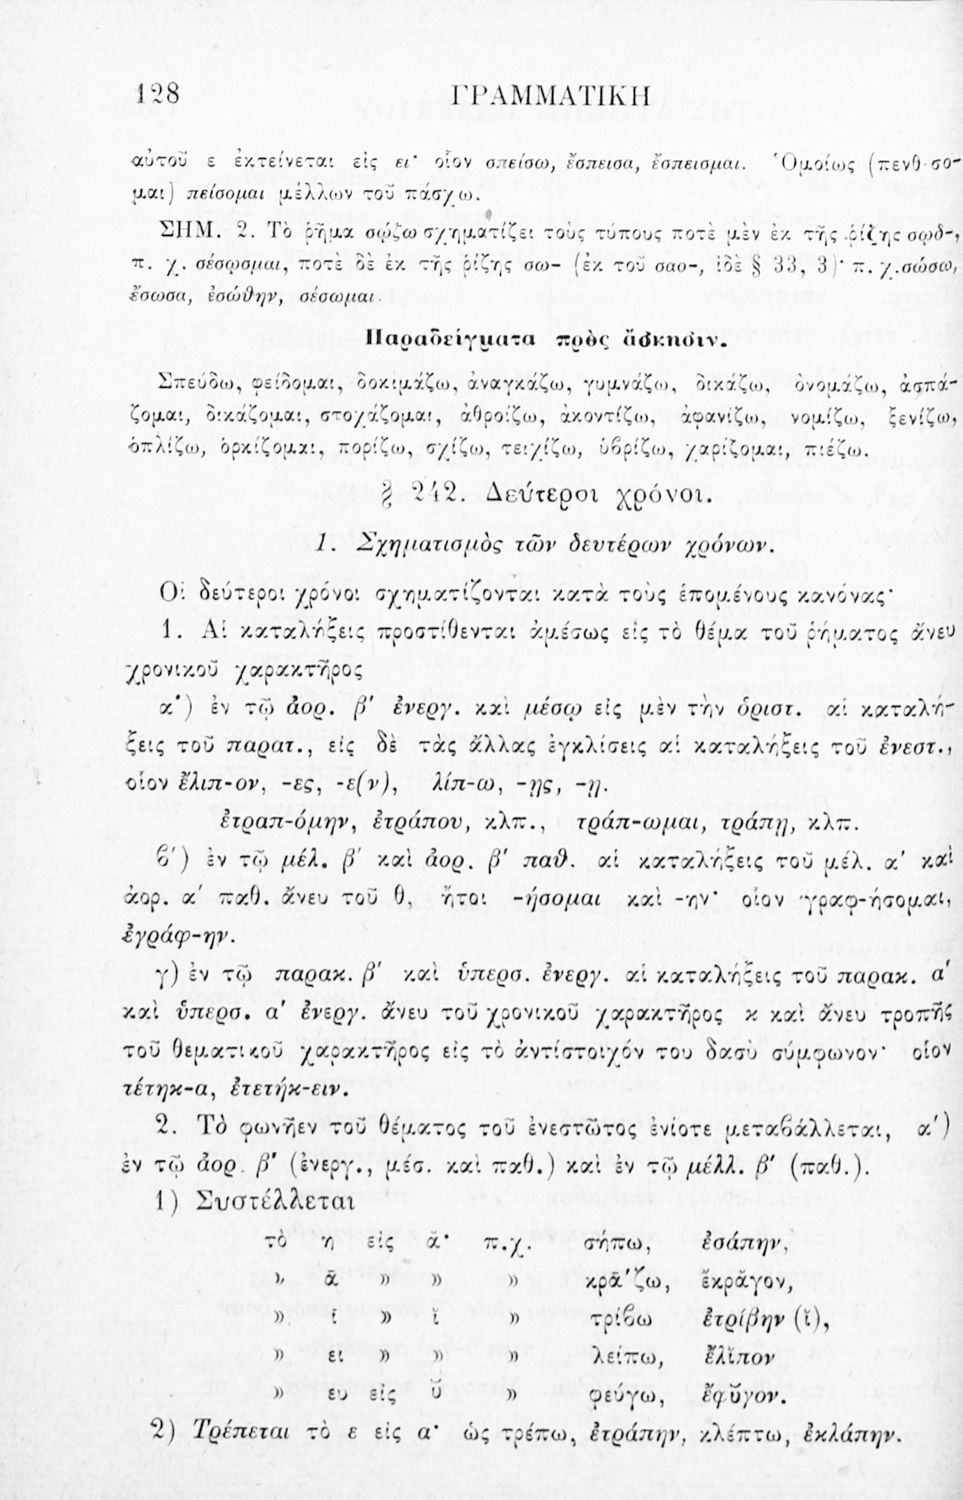 128 ΓΡΑΜΜΑΤΙΚΗ
αὐτοῦ ε ἐκτείνεται εἰς ει· οἷον σπείσω, ἔσπεισα, ἔσπεισμαι. Ὁμοίως (πενθ-σο-
μαι) πείσομαι μέλλων τοῦ πάσχω.
ΣΗΜ. 2. Τὸ ῥῆμα σῴζω σχηματίζει τοὺς τύπους ποτὲ μὲν ἐκ τῆς ῥίζης σῳδ-,
π. χ. σέσῳσμαι, ποτὲ δὲ ἐκ τῆς ῥίζης σω- (ἐκ τοῦ σαο-, ἰδὲ § 33, 3)· π. χ. σώσω,
ἔσωσα, ἐσώθην, σέσωμαι.
Παραδείγματα πρὸς ἄσκησιν.
Σπεύδω, φείδομαι, δοκιμάζω, ἀναγκάζω, γυμνάζω, δικάζω, ὀνομάζω, ἀσπά-
ζομαι, δικάζομαι, στοχάζομαι, ἀθροίζω, ἀκοντίζω, ἀφανίζω, νομίζω, ξενίζω,
ὁπλίζω, ὁρκίζομαι, πορίζω, σχίζω, τειχίζω, ὑβρίζω, χαρίζομαι, πιέζω.
§ 242. Δεύτεροι χρόνοι.
1. Σχηματισμὸς τῶν δευτέρων χρόνων.
Οἱ δεύτεροι χρόνοι σχηματίζονται κατὰ τοὺς ἑπομένους κανόνας·
1. Αἱ καταλήξεις προστίθενται ἀμέσως εἰς τὸ θέμα τοῦ ῥήματος ἄνευ
χρονικοῦ χαρακτῆρος
α') ἐν τῷ ἀορ. β' ἐνεργ. καὶ μέσῳ εἰς μὲν τὴν ὁριστ. αἱ καταλή-
ξεις τοῦ παρατ., εἰς δὲ τὰς ἄλλας ἐγκλίσεις αἱ καταλήξεις τοῦ ἐνεστ.,
οἷον ἔλιπ-ον, -ες, -ε(ν), λίπ-ω, -ῃς, -ῃ.
ἐτραπ-όμην, ἐτράπου, κλπ., τράπ-ωμαι, τράπῃ, κλπ.
β') ἐν τῷ μέλ. β' καὶ ἀορ. β' παθ. αἱ καταλήξεις τοῦ μέλ. α' καὶ
ἀορ. α' παθ. ἄνευ τοῦ θ, ἤτοι -ήσομαι καὶ -ην· οἷον γραφ-ήσομαι,
ἐγράφ-ην.
γ) ἐν τῷ παρακ. β' καὶ ὑπερσ. ἐνεργ. αἱ καταλήξεις τοῦ παρακ. α'
καὶ ὑπερσ. α' ἐνεργ. ἄνευ τοῦ χρονικοῦ χαρακτῆρος κ καὶ ἄνευ τροπῆς
τοῦ θεματικοῦ χαρακτῆρος εἰς τὸ ἀντίστοιχόν του δασὺ σύμφωνον· οἷον
τέτηκ-α, ἐτετήκ-ειν.
2. Τὸ φωνῆεν τοῦ θέματος τοῦ ἐνεστῶτος ἐνίοτε μεταβάλλεται, α')
ἐν τῷ ἀορ. β' (ἐνεργ., μέσ. καὶ παθ.) καὶ ἐν τῷ μέλλ. β' (παθ.).
1) Συστέλλεται
τὸ η εἰς ᾰ· π.χ. σήπω, ἐσάπην,
» ᾱ » » » κρᾱ́ζω, ἔκρᾰγον,
» ῑ » ῐ » τρίβω ἐτρίβην (ῐ),
» ει » » » λείπω, ἔλῐπον
» ευ εἰς ῠ » φεύγω, ἔφῠγον.
2) Τρέπεται τὸ ε εἰς α· ὡς τρέπω, ἐτράπην, κλέπτω, ἐκλάπην.